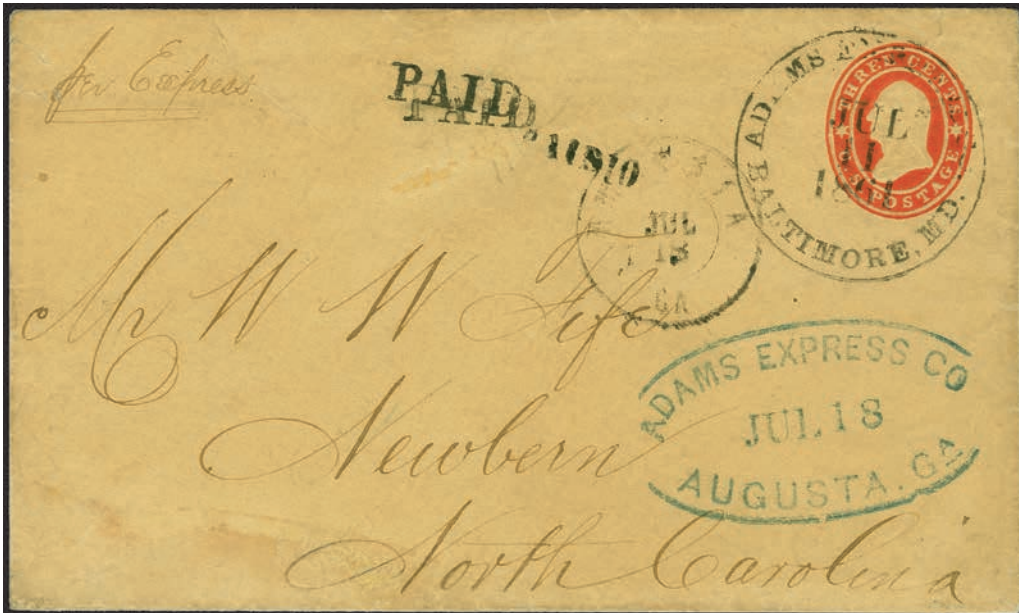 per Express
PAID
PAID, 10
ADAMS EX
JUL
11
1861
BALTIMORE, MD.
THREE CENTS
U.S. POSTAGE
JUL
18
GA
Mr W W Fife
Newbern
North Carolina
ADAMS EXPRESS CO
JUL 18
AUGUSTA. GA